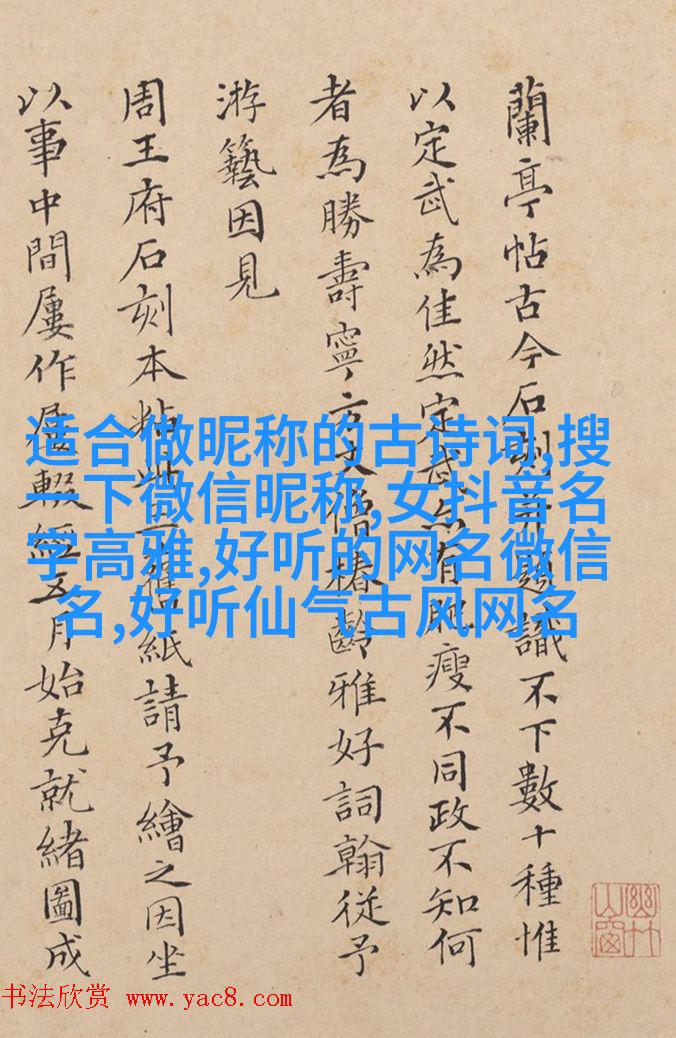 蘭亭帖古今石刻并題識不下數十種惟
以定武為佳然定武亦有肥瘦不同政不知何
者為勝壽寧方丈僧椿齡雅好詞翰從予
游藝因見
周王府石刻本粘舊紙請予繪之因坐
以事中間屢作屢輟經五月始克就緒圖成
幽竹山窗
适合做昵称的古诗词,搜
一下微信昵称,女抖音名
字高雅,好听的网名微信
名,好听仙气古风网名
书法欣赏 www.yac8.com